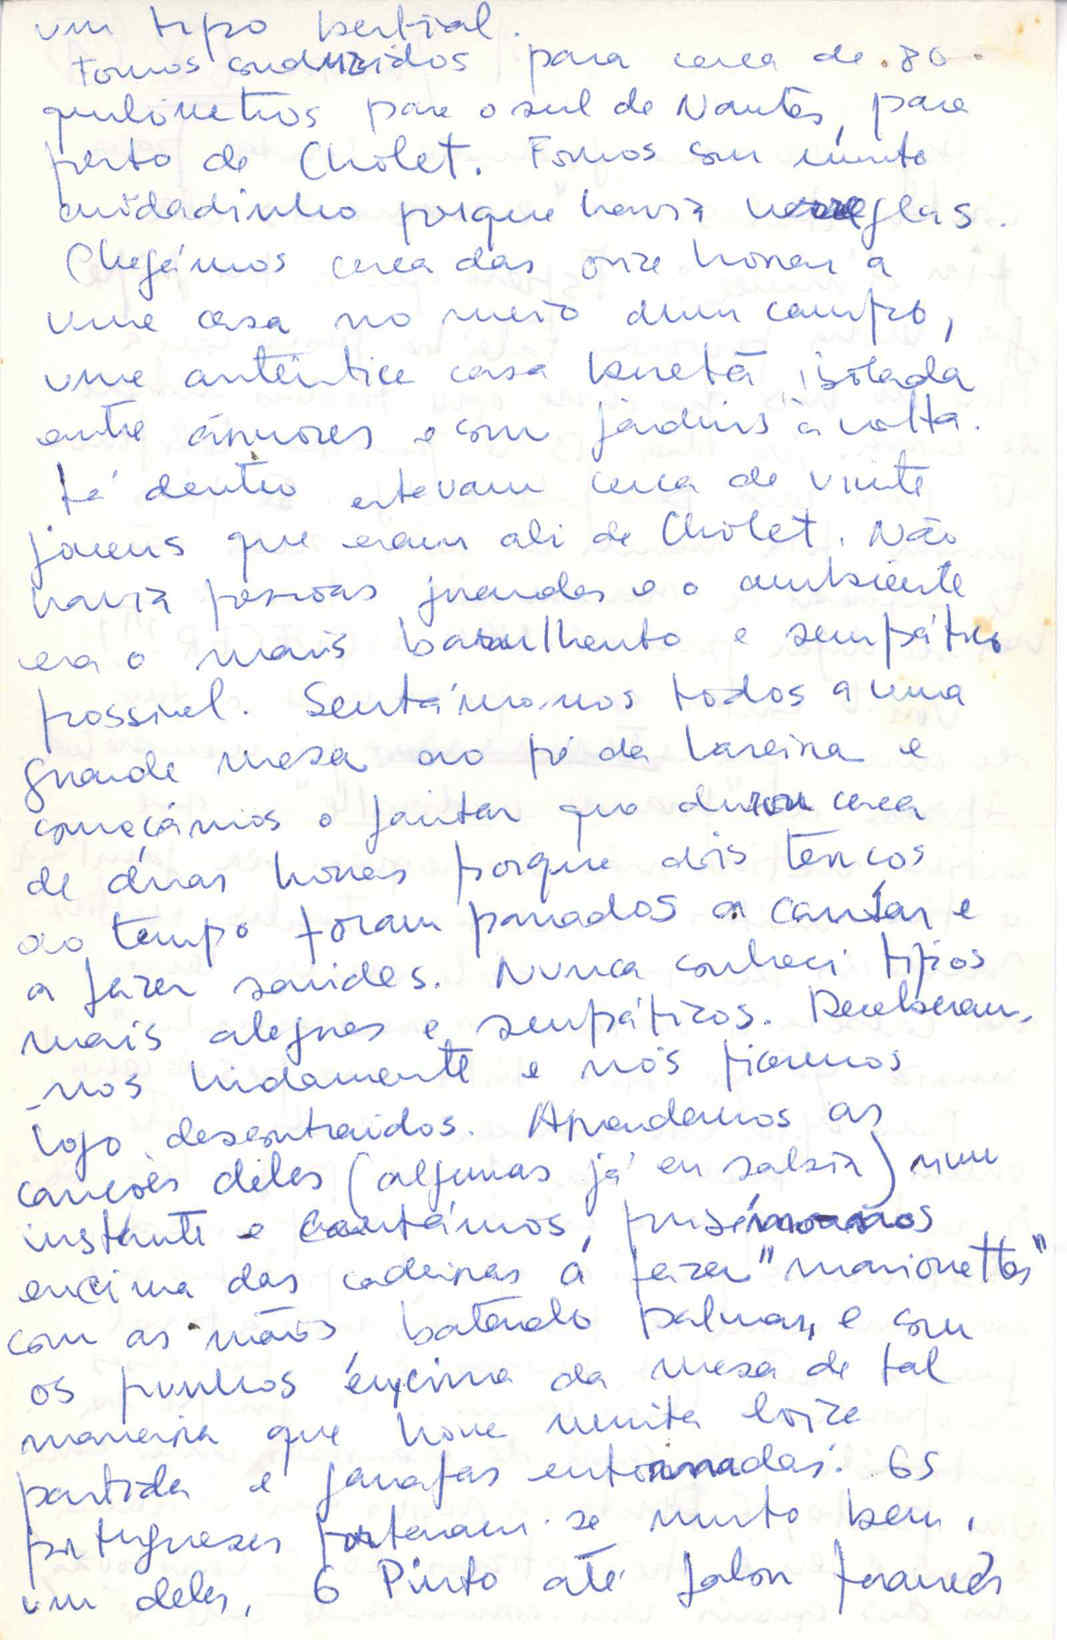 um tipo bestial.
Fomos conduzidos para cerca de 80
quilómetros para o sul de Nantes, para
perto de Cholet. Fomos com muito
cuidadinho porque havia verglas.
Chegámos cerca das onze horas a
uma casa no meio dum campo,
uma autêntica casa bretã isolada
entre árvores e com jardins à volta.
Lá dentro estavam cerca de vinte
jovens que eram ali de Cholet. Não
havia pessoas grandes e o ambiente
era o mais barulhento e simpático
possivel. Sentámo-nos todos a uma
grande mesa ao pé da lareira e
começámos o jantar que durou cerca
de duas horas porque dois terços
do tempo foram passados a cantar e
a fazer saudes. Nunca conheci tipos
mais alegres e simpáticos. Receberam-
-nos lindamente e nós ficámos
logo descontraidos. Aprendemos as
canções deles (algumas já eu sabia) num
instante e cantámos, pusémo-nos
encima das cadeiras a fazer "marionettes"
com as mãos, batendo palmas, e com
os punhos encima da mesa de tal
maneira que houve muita loiça
partida e garrafas entornadas. Os
portugueses portaram-se muito bem,
um deles, o Pinto até falou francês